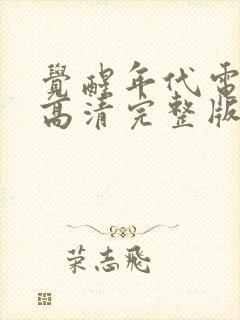 覺醒年代電
高清完整版
荣志飛